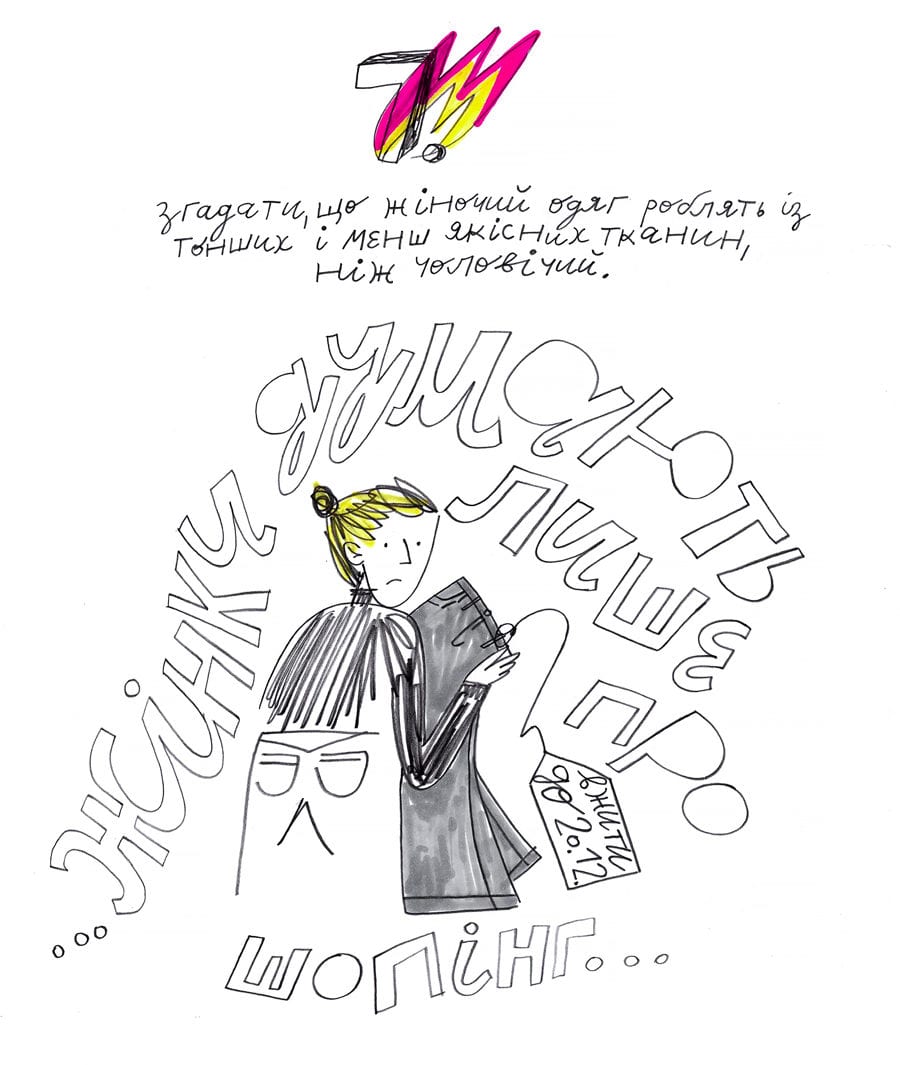 7.
згадати, що жіночий одяг роблять із
тонших і менш якісних тканин,
ніж чоловічий.
...жінки думають
лише про
шопінг...
вжити
до 20.12.